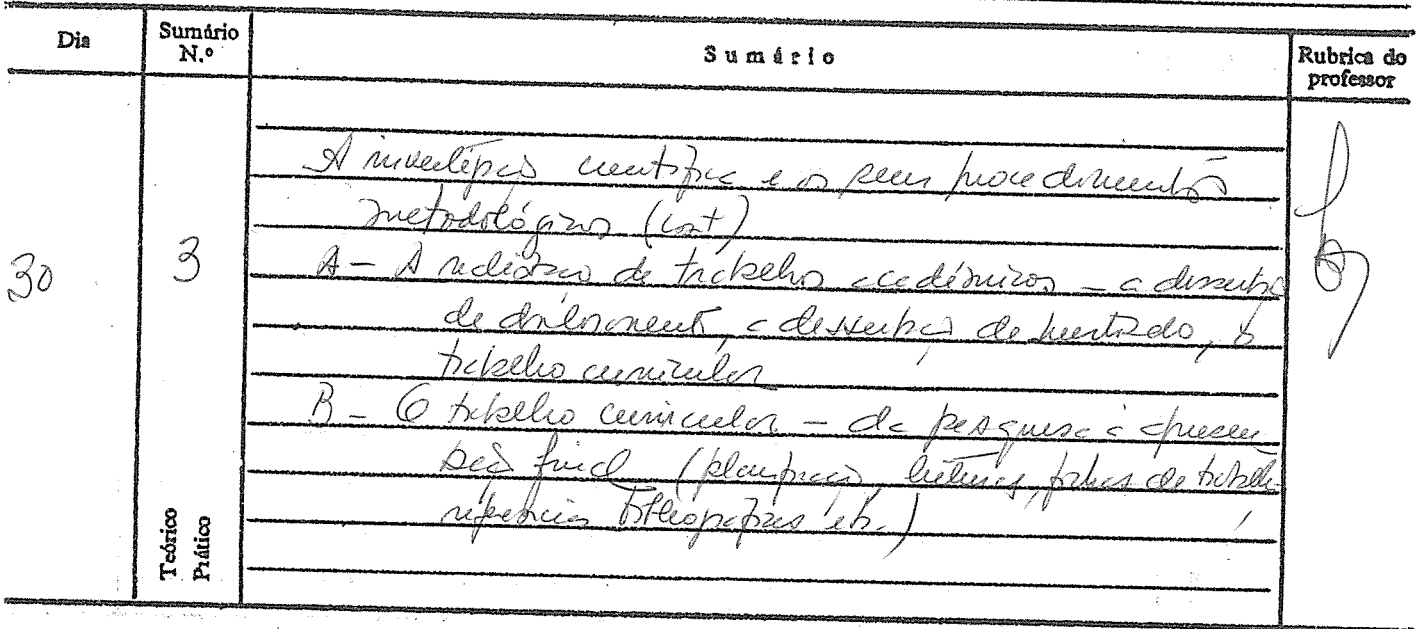 Dia
Sumário N.º
Sumário
Rubrica do professor
30
3
Teórico
Prático
A investigação científica e os seus procedimentos
metodológicos (cont)
A - A redacção de trabalhos académicos - a dissertação
de doutoramento, a dissertação de mestrado, o
trabalho curricular
B - O trabalho curricular - da pesquisa à apresen
tação final (planificação, leituras, fichas de trabalho,
referências bibliográficas etc.)